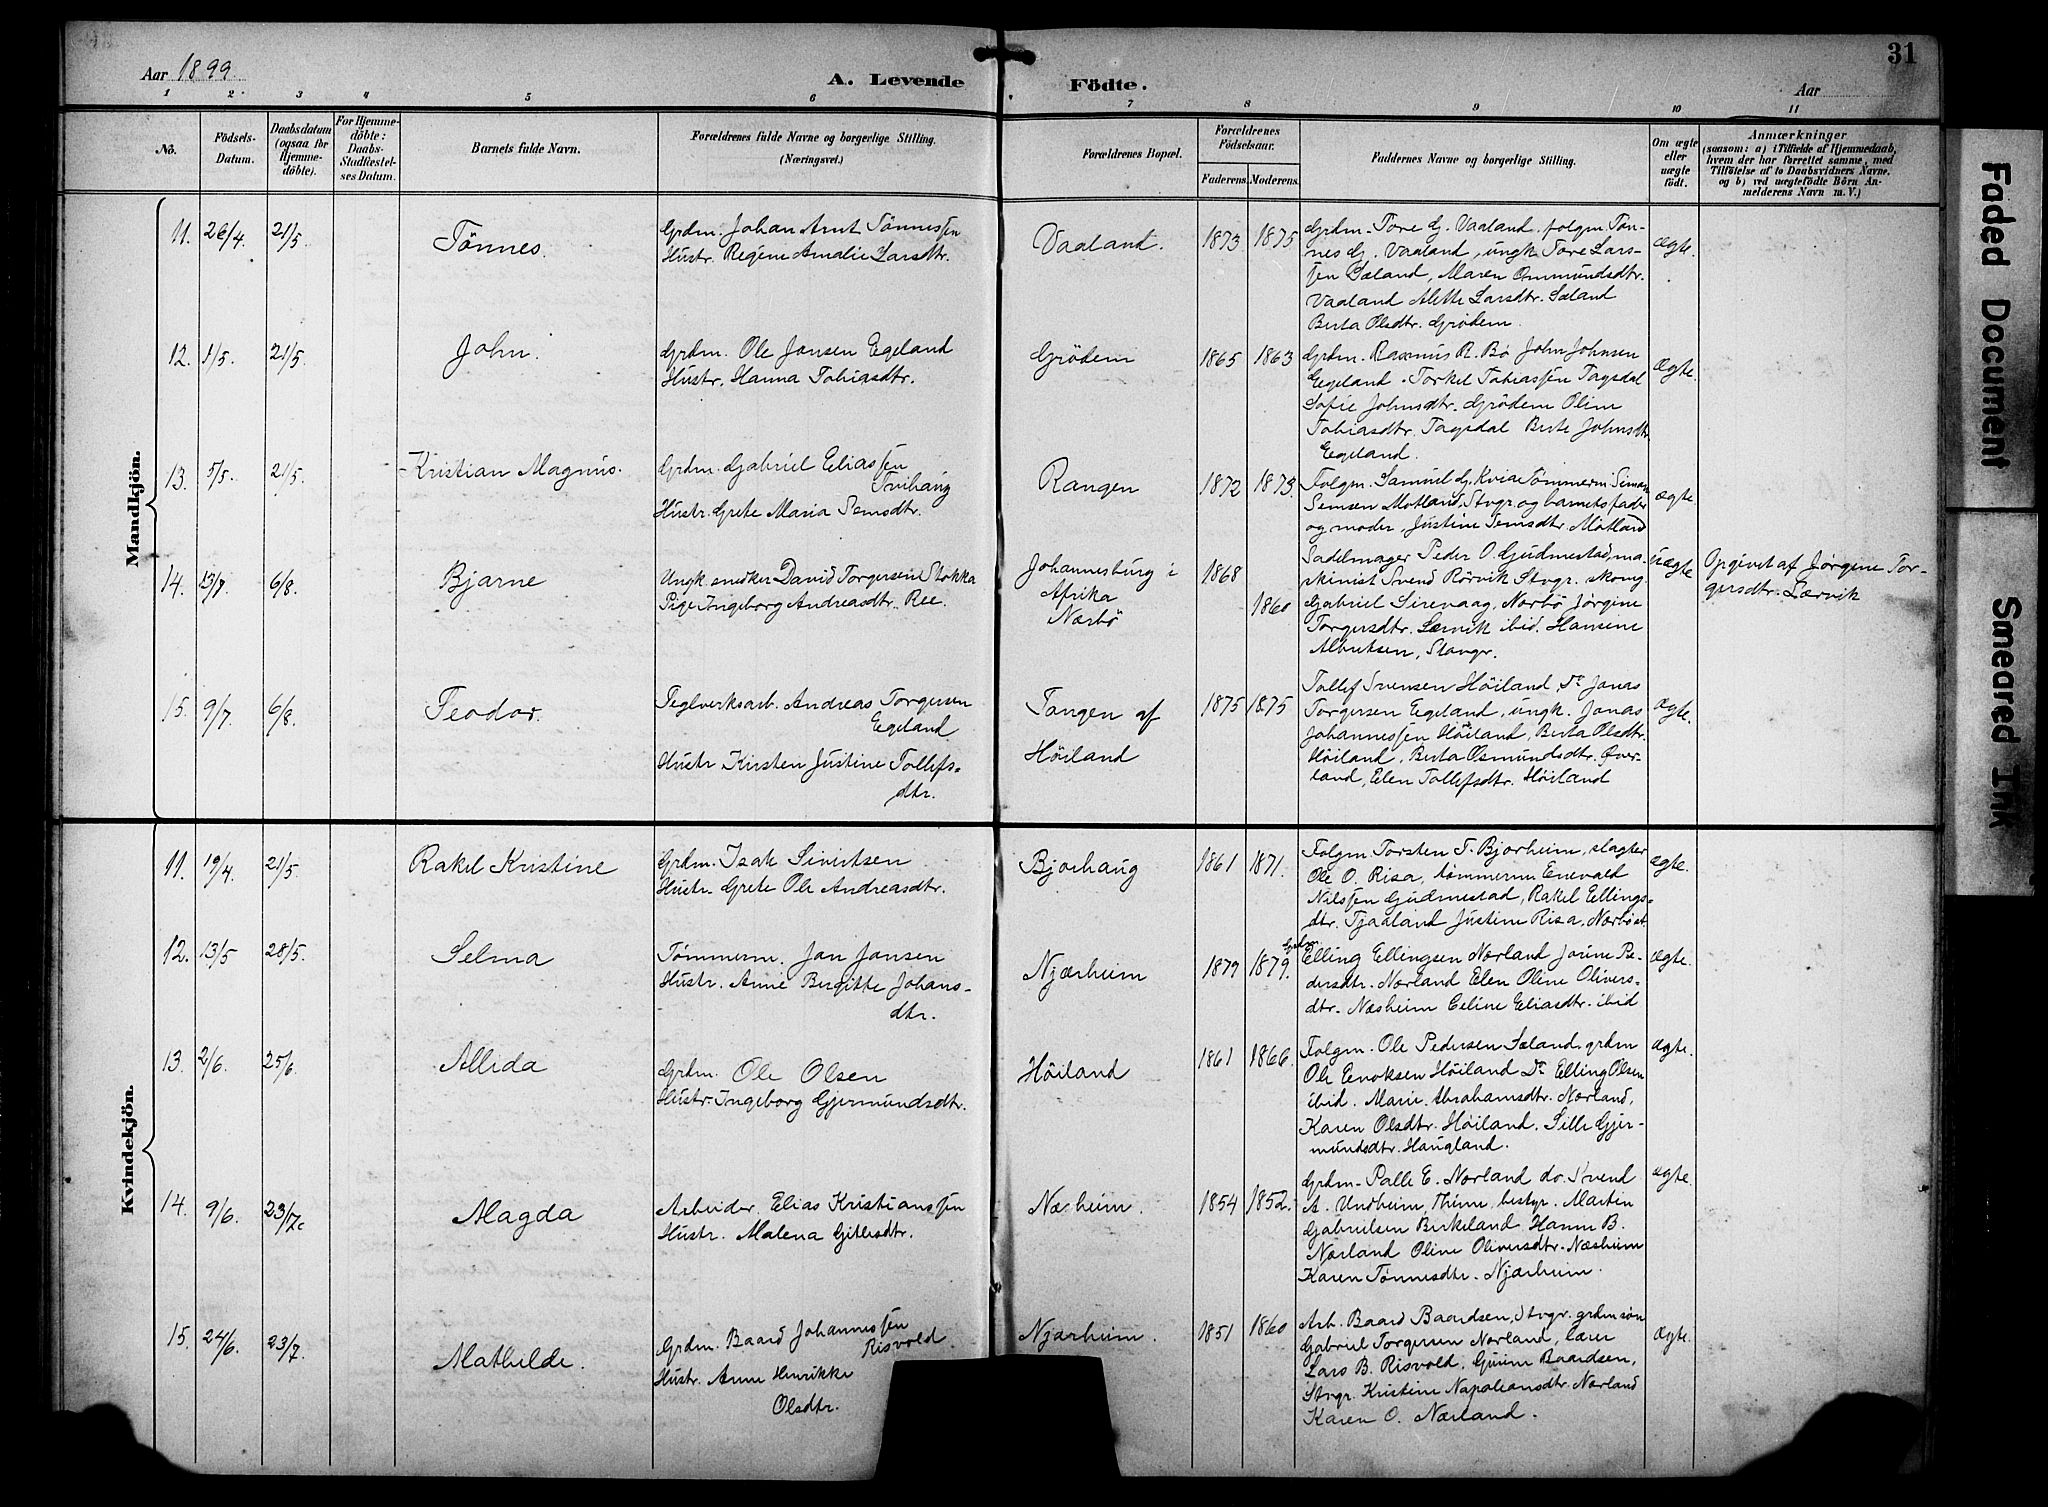 31
Aar 1899.
A. Levende Födte.
Aar
1 2. 3 4 5 6 7 8 9 10 11
No.
Födsels-
Datum.
Daabsdatum
(ogsaa for
Hjemme-
döbte).
For Hjemme-
döbte:
Daabs-
Stadfæstel-
ses Datum.
Barnets fulde Navn.
Forældrenes fulde Navne og borgerlige Stilling.
(Næringsvei.)
Forældrenes Bopæl.
Forældrenes
Födselsaar.
Faderens. Moderens.
Faddernes Navne og borgerlige Stilling.
Om ægte
eller
uægte
født.
Anmærkninger
(saasom: a) i Tilfælde af Hjemmedaab,
hvem der har forrettet samme, med
Tilföielse af to Daabsvidners Navne,
og b) ved uægtefödte Börn An-
melderens Navn m. V.)
Mandkjön.
11. 26/4. 21/5.
Tönnes.
Grdm. Johan Arnt Tönnessen
Hustr. Regine Amalie Larsdtr.
Vaaland.
1873 1875
Grdm. Tore G. Vaaland, folgm. Tön-
nes G. Vaaland, ungk. Tore Lars-
sen Sæland, Maren Ommundsdtr.
Vaaland Alette Larsdtr. Sæland
Berta Olsdtr. Grödem.
ægte.
12. 1/5. 21/5
John.
Grdm. Ole Jonsen Egeland
Hustr. Hanna Tobiasdtr.
Grödem
1865 1863
Grdm. Rasmus R. Bö John Johnsen
Egeland. Torkel Tobiassen Tagsdal
Sofie Johnsdtr. Grödem Oline
Tobiasdtr. Tagsdal Berte Johnsdtr
Egeland.
Ægte.
13. 5/5. 21/5.
Kristian Magnus.
Grdm. Gabriel Eliassen
Tvihaug
Hustr. Grete Maria Semsdtr.
Rangen
1872 1873.
Folgm. Samuel G. Kvia Tömmerm. Simon
Semsen Motland, Stvgr. og barnets fader
og moder, Justine Semsdtr. Motland
ægte
14. 13/7. 6/8.
Bjarne
Ungk. snedker David Torgersen Stokka
Pige Ingeborg Andreasdtr. Ree.
Johannesburg i
Afrika
Nærbö
1868
1860
Sadelmager Peder O. Gudmestad, ma-
skinist Svend Rörvik Stvgr. skomg.
Gabriel Sirevaag, Nærbö Jörgine
Torgersdtr. Lærvik ibid. Hansine
Albertsen, Stavgr.
uægte
Opgivet af Jörgine Tor-
gersdtr. Lærvik
15. 9/7. 6/8.
Teodor.
Teglverksarb. Andreas Torgersen
Egeland
Hustr Kirsten Justine Tollefs-
dtr.
Tangen af
Höiland
1875 1875
Tollef Svensen Höiland, Do Jonas
Torgersen Egeland, ungk. Jonas
Johannessen Höiland, Berta Olsdtr.
Höiland, Berta Osmundsdtr. Över-
land, Elen Tollefsdtr. Höiland
ægte.
Kvindekjön.
11. 19/4. 21/5.
Rakel Kristine
Grdm. Isak Sivertsen
Hustr. Grete Ole Andreasdtr.
Bjorhaug
1861 1871.
Folgm. Torsten T. Bjorheim, slagter
Ole O. Risa, tömmerm. Enevald
Nilssen Gudmestad, Rakel Ellings-
dtr. Tjaaland Justine Risa, Nærböst.
ægte.
12. 13/5 28/5.
Selma
Tömmerm. Jan Jansen
Hustr. Anne Birgitte Johans-
dtr.
Njærheim
1879 1879.
Grdm.
Elling Ellingsen Nærland Jorine Pe-
dersdtr. Nærland Elen Oline Olivers-
dtr. Næsheim Celine Eliasdtr. ibid
ægte.
13. 2/6. 25/6.
Allida
Grdm. Ole Olsen
Hustr. Ingeborg Gjermundsdtr.
Höiland
1861 1866.
Folgm. Ole Pedersen Sæland. grdm
Ole Enoksen Höiland Do Elling Olsen
ibid. Marie Abrahamsdtr. Nærland,
Karen Olsdtr. Höiland. Sille Gjer-
mundsdtr. Haugland.
ægte.
14. 9/6. 23/7.
Magda
Arbeider. Elias Kristianssen
Hustr. Malena Gitlesdtr.
Næsheim.
1854 1852.
Grdm. Palle E. Nærland do. Svend
A. Undheim, Thime, bestyr. Marten
Gabrielsen Birkeland Hanne B.
Nærland Oline Oliversdtr. Næsheim
Karen Tönnesdtr. Njærheim.
ægte.
15. 24/6. 23/7.
Mathilde.
Grdm. Baard Johannessen
Risvold.
Hustr. Anne Henrikke
Olsdtr.
Njærheim.
1851 1860
Arb. Baard Baardsen, Stvgr. grdmsön
Gabriel Torgersen Nærland, lærer
Lars B. Risvold. Gurine Baardsen,
Stvgr. Kristine Napoliansdtr. Nærland
Karen O. Nærland.
Ægte.
Faded Document
Smeared Ink